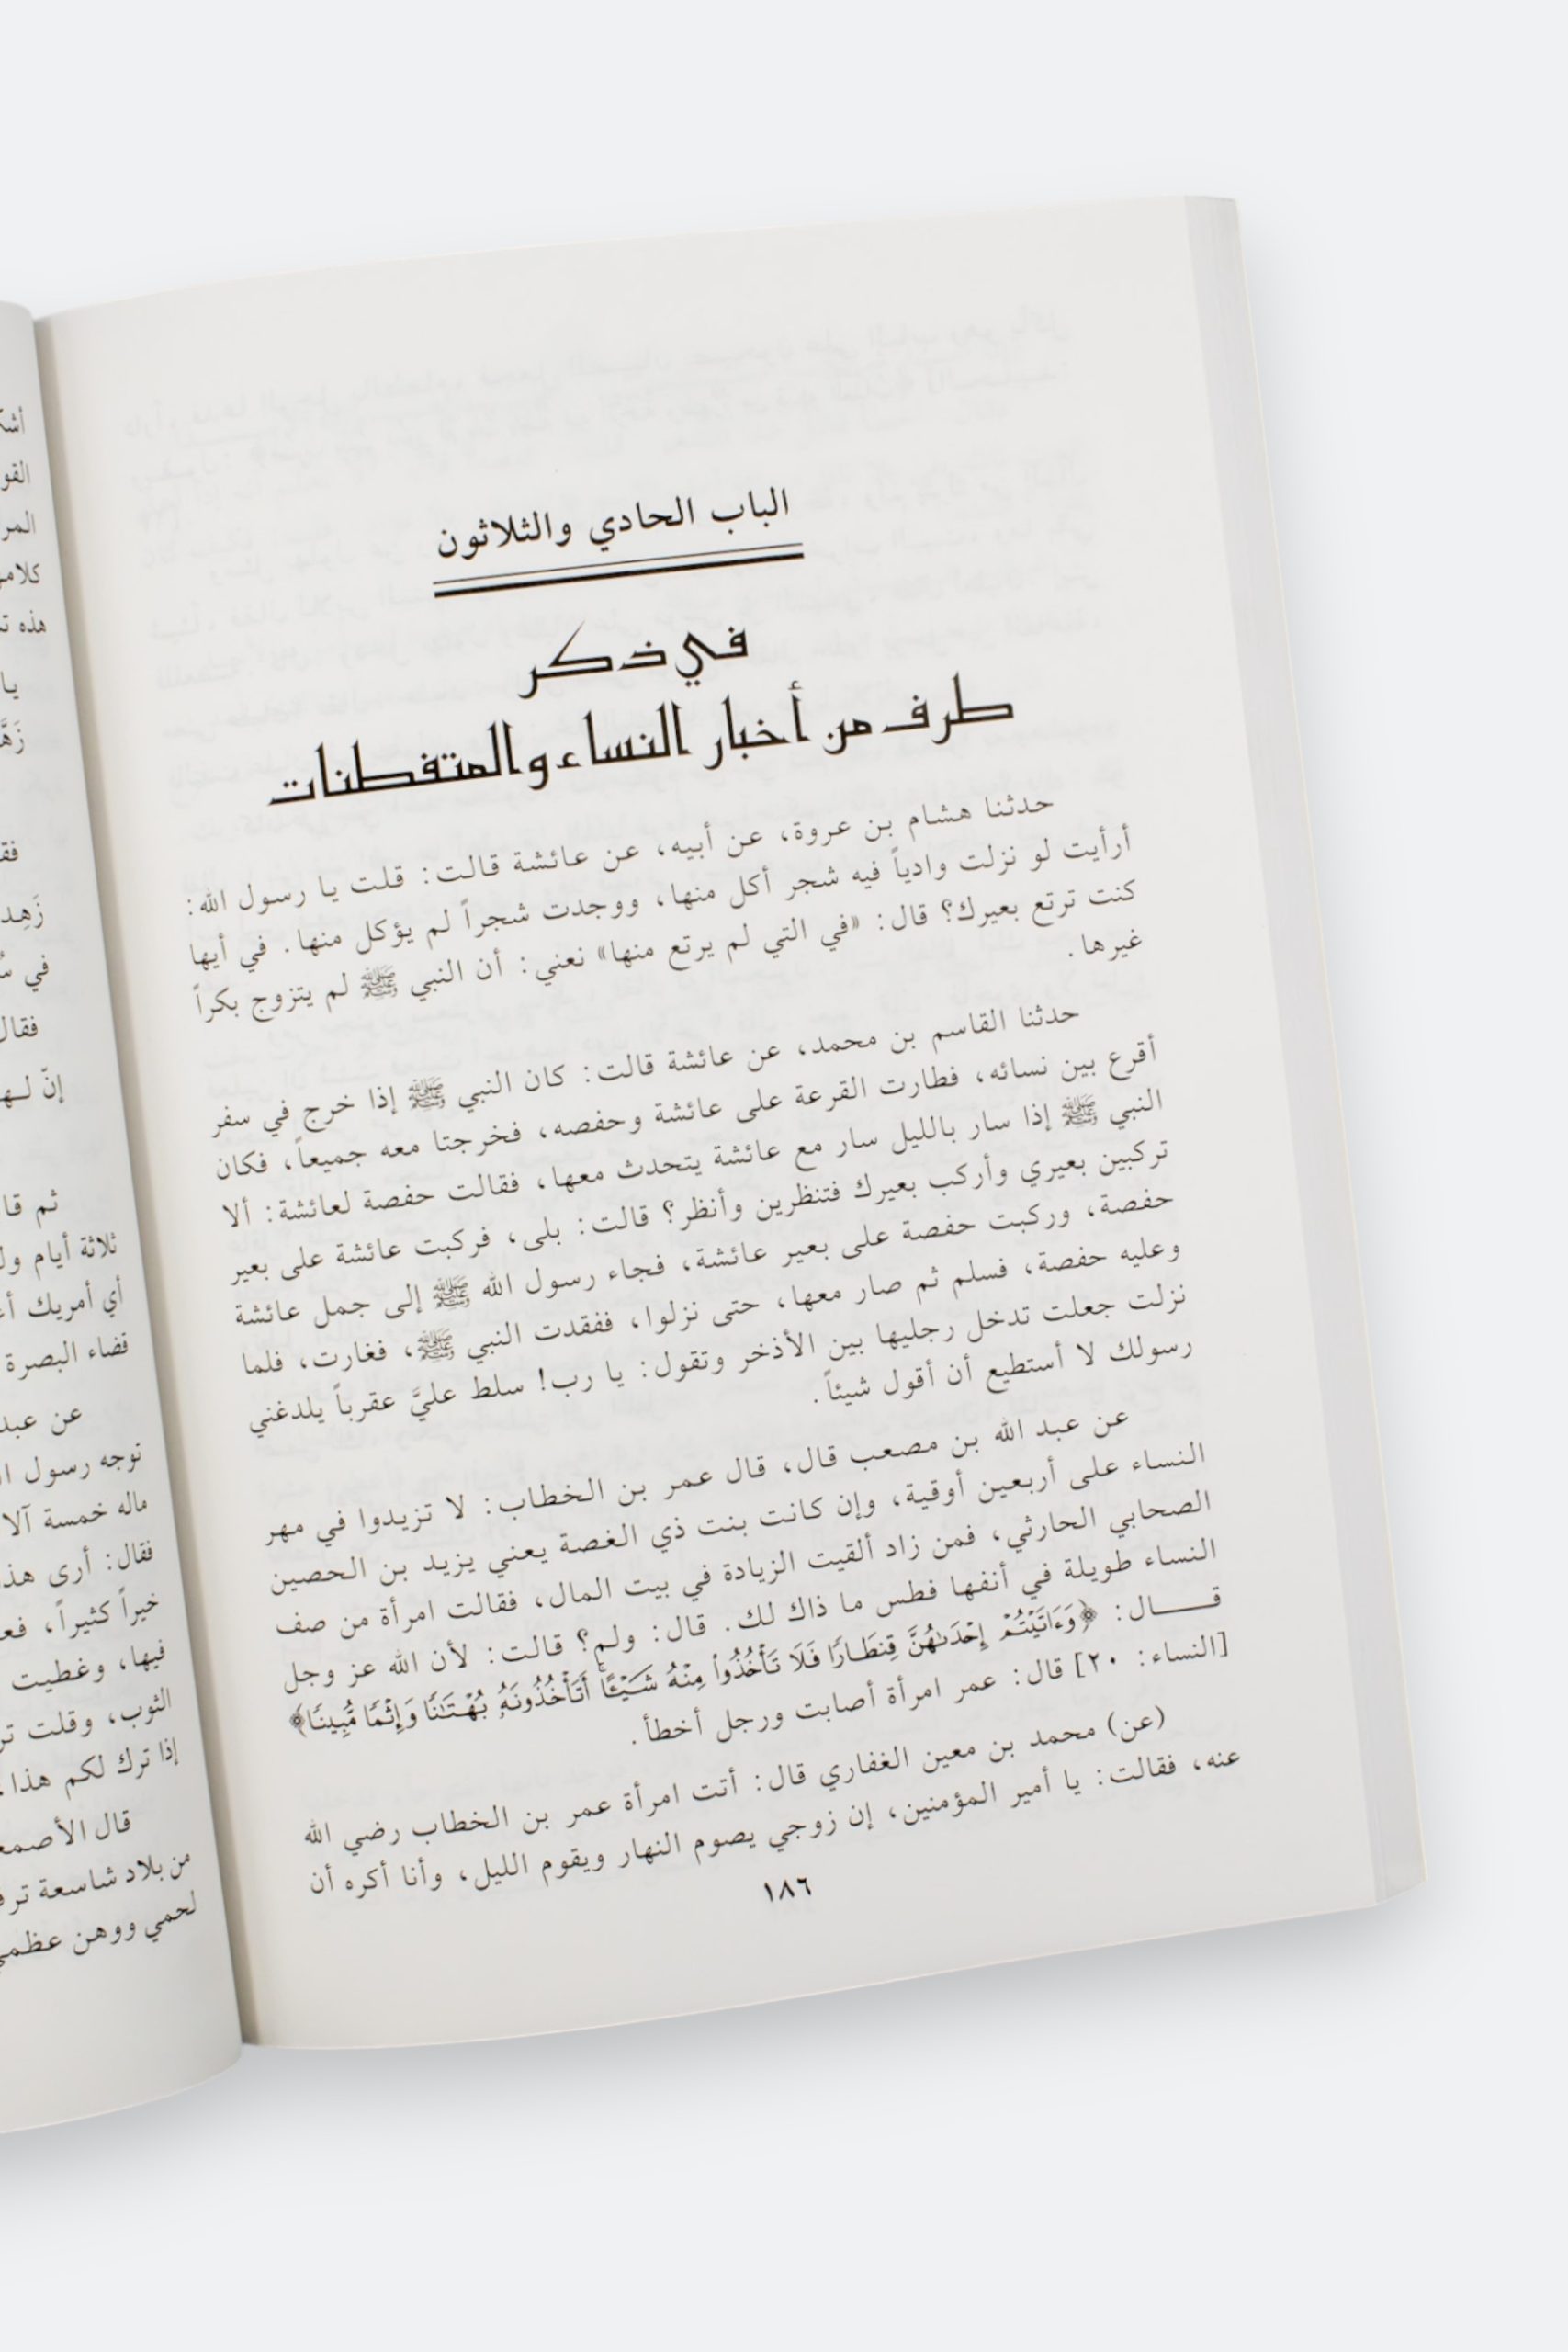 الباب الحادي والثلاثون
في ذكر
طرف من أخبار النساء والمتفطنات
حدثنا هشام بن عروة، عن أبيه، عن عائشة قالت: قلت يا رسول الله:
أرأيت لو نزلت وادياً فيه شجر أكل منها، ووجدت شجراً لم يؤكل منها. في أيها
كنت ترتع بعيرك؟ قال: «في التي لم يرتع منها» نعني: أن النبي ﷺ لم يتزوج بكراً
غيرها.
حدثنا القاسم بن محمد، عن عائشة قالت: كان النبي ﷺ إذا خرج في سفر
أقرع بين نسائه، فطارت القرعة على عائشة وحفصه، فخرجتا معه جميعاً، فكان
النبي ﷺ إذا سار بالليل سار مع عائشة يتحدث معها، فقالت حفصة لعائشة: ألا
تركبين بعيري وأركب بعيرك فتنظرين وأنظر؟ قالت: بلى، فركبت عائشة على بعير
حفصة، وركبت حفصة على بعير عائشة، فجاء رسول الله ﷺ إلى جمل عائشة
وعليه حفصة، فسلم ثم صار معها، حتى نزلوا، ففقدت النبي ﷺ، فغارت، فلما
نزلت جعلت تدخل رجليها بين الأذخر وتقول: يا رب! سلط عليَّ عقرباً يلدغني
رسولك لا أستطيع أن أقول شيئاً.
عن عبد الله بن مصعب قال، قال عمر بن الخطاب: لا تزيدوا في مهر
النساء على أربعين أوقية، وإن كانت بنت ذي الغصة يعني يزيد بن الحصين
الصحابي الحارثي، فمن زاد ألقيت الزيادة في بيت المال، فقالت امرأة من صف
النساء طويلة في أنفها فطس ما ذاك لك. قال: ولم؟ قالت: لأن الله عز وجل
قـــال: ﴿وَءَاتَيْتُمْ إِحْدَىٰهُنَّ قِنطَارًا فَلَا تَأْخُذُوا۟ مِنْهُ شَيْـًٔا ۚ أَتَأْخُذُونَهُۥ بُهْتَـٰنًا وَإِثْمًا مُّبِينًا﴾
[النساء: ٢٠] قال: عمر امرأة أصابت ورجل أخطأ.
(عن) محمد بن معين الغفاري قال: أتت امرأة عمر بن الخطاب رضي الله
عنه، فقالت: يا أمير المؤمنين، إن زوجي يصوم النهار ويقوم الليل، وأنا أكره أن
١٨٦
القو
المر
هذه
يا
في
فقال
إنّ
ثم قا
ثلاثة أيام
أي أمريك
قضاء البصرة
عن عبد
توجه رسول
ماله خمسة
فقال: أرى
خيراً كثيراً،
فيها، وغطيت
الثوب، وقلت
إذا ترك لكم هذا
قال
من بلاد شاسعة
لحمي ووهن عظمي